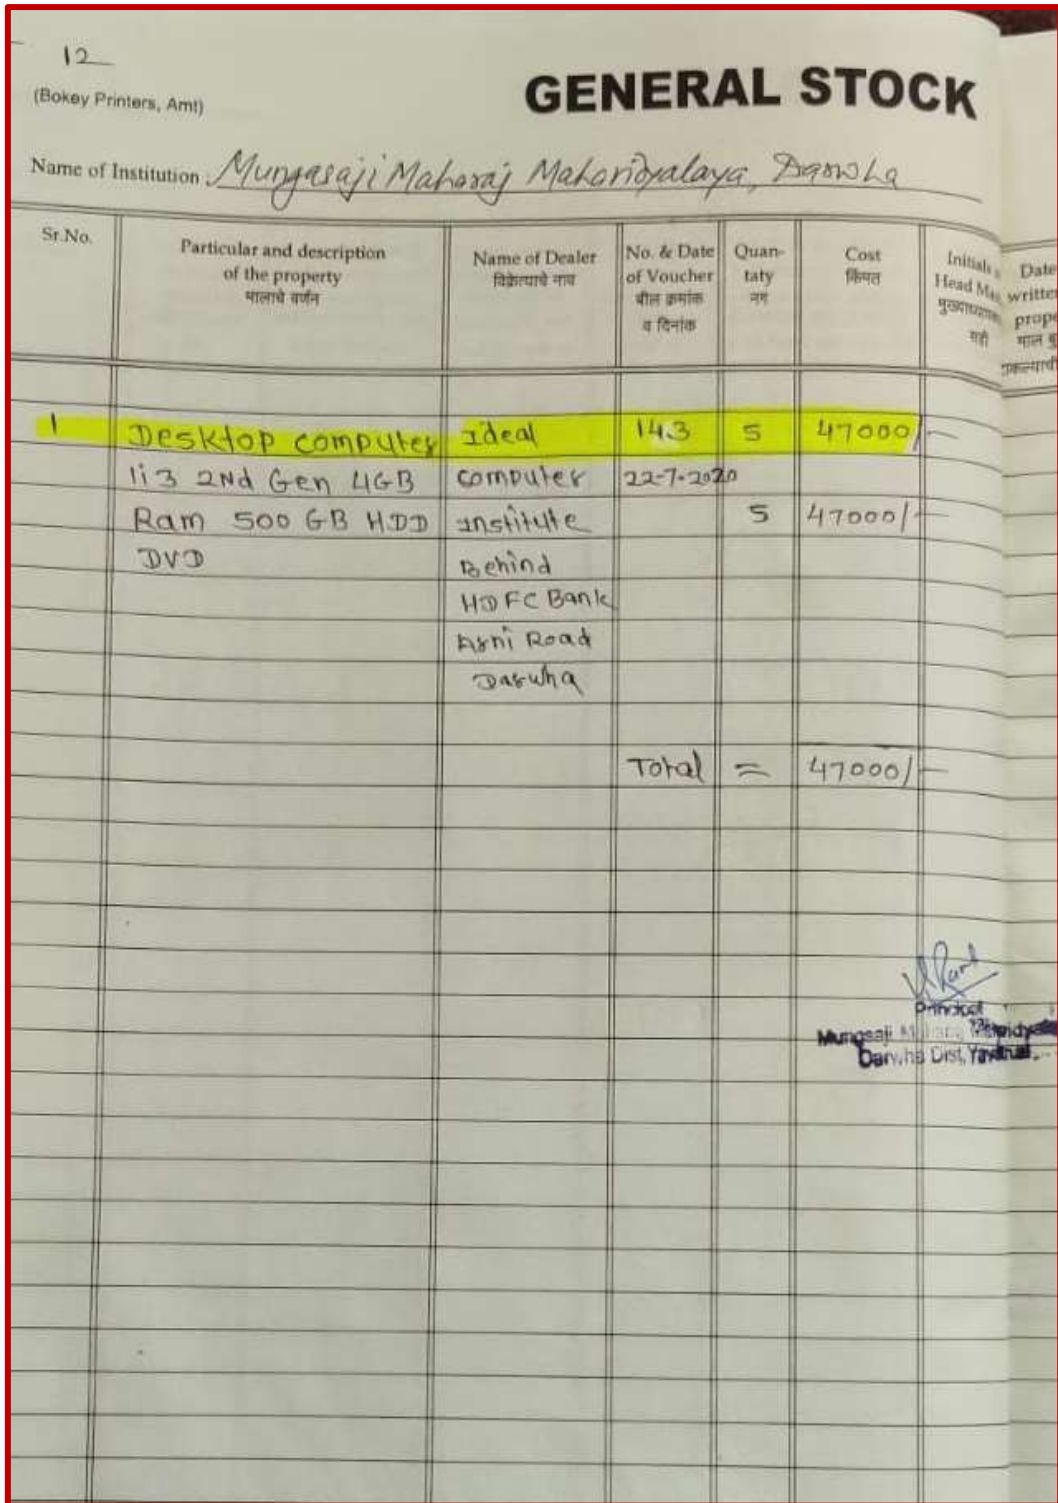 12
(Bokey Printers, Amt)
GENERAL STOCK
Name of Institution Mungasaji Maharaj Mahavidyalaya, Darwha
Sr.No. Particular and description of the property मालाचे वर्णन Name of Dealer विक्रेत्याचे नाव No. & Date of Voucher बील क्रमांक व दिनांक Quan-taty नग Cost किंमत Initials Head Mas मुख्याध्यापक सही Date written prope माल
1 Desktop computer Ideal 143 5 47000/-
1i3 2Nd Gen 4GB computer 22-7-2020
Ram 500 GB HDD institute 5 47000/-
DVD Behind
HDFC Bank
Arni Road
Darwha
Total = 47000/-
Principal
Mungsaji
Darwha Dist. Yavatmal.